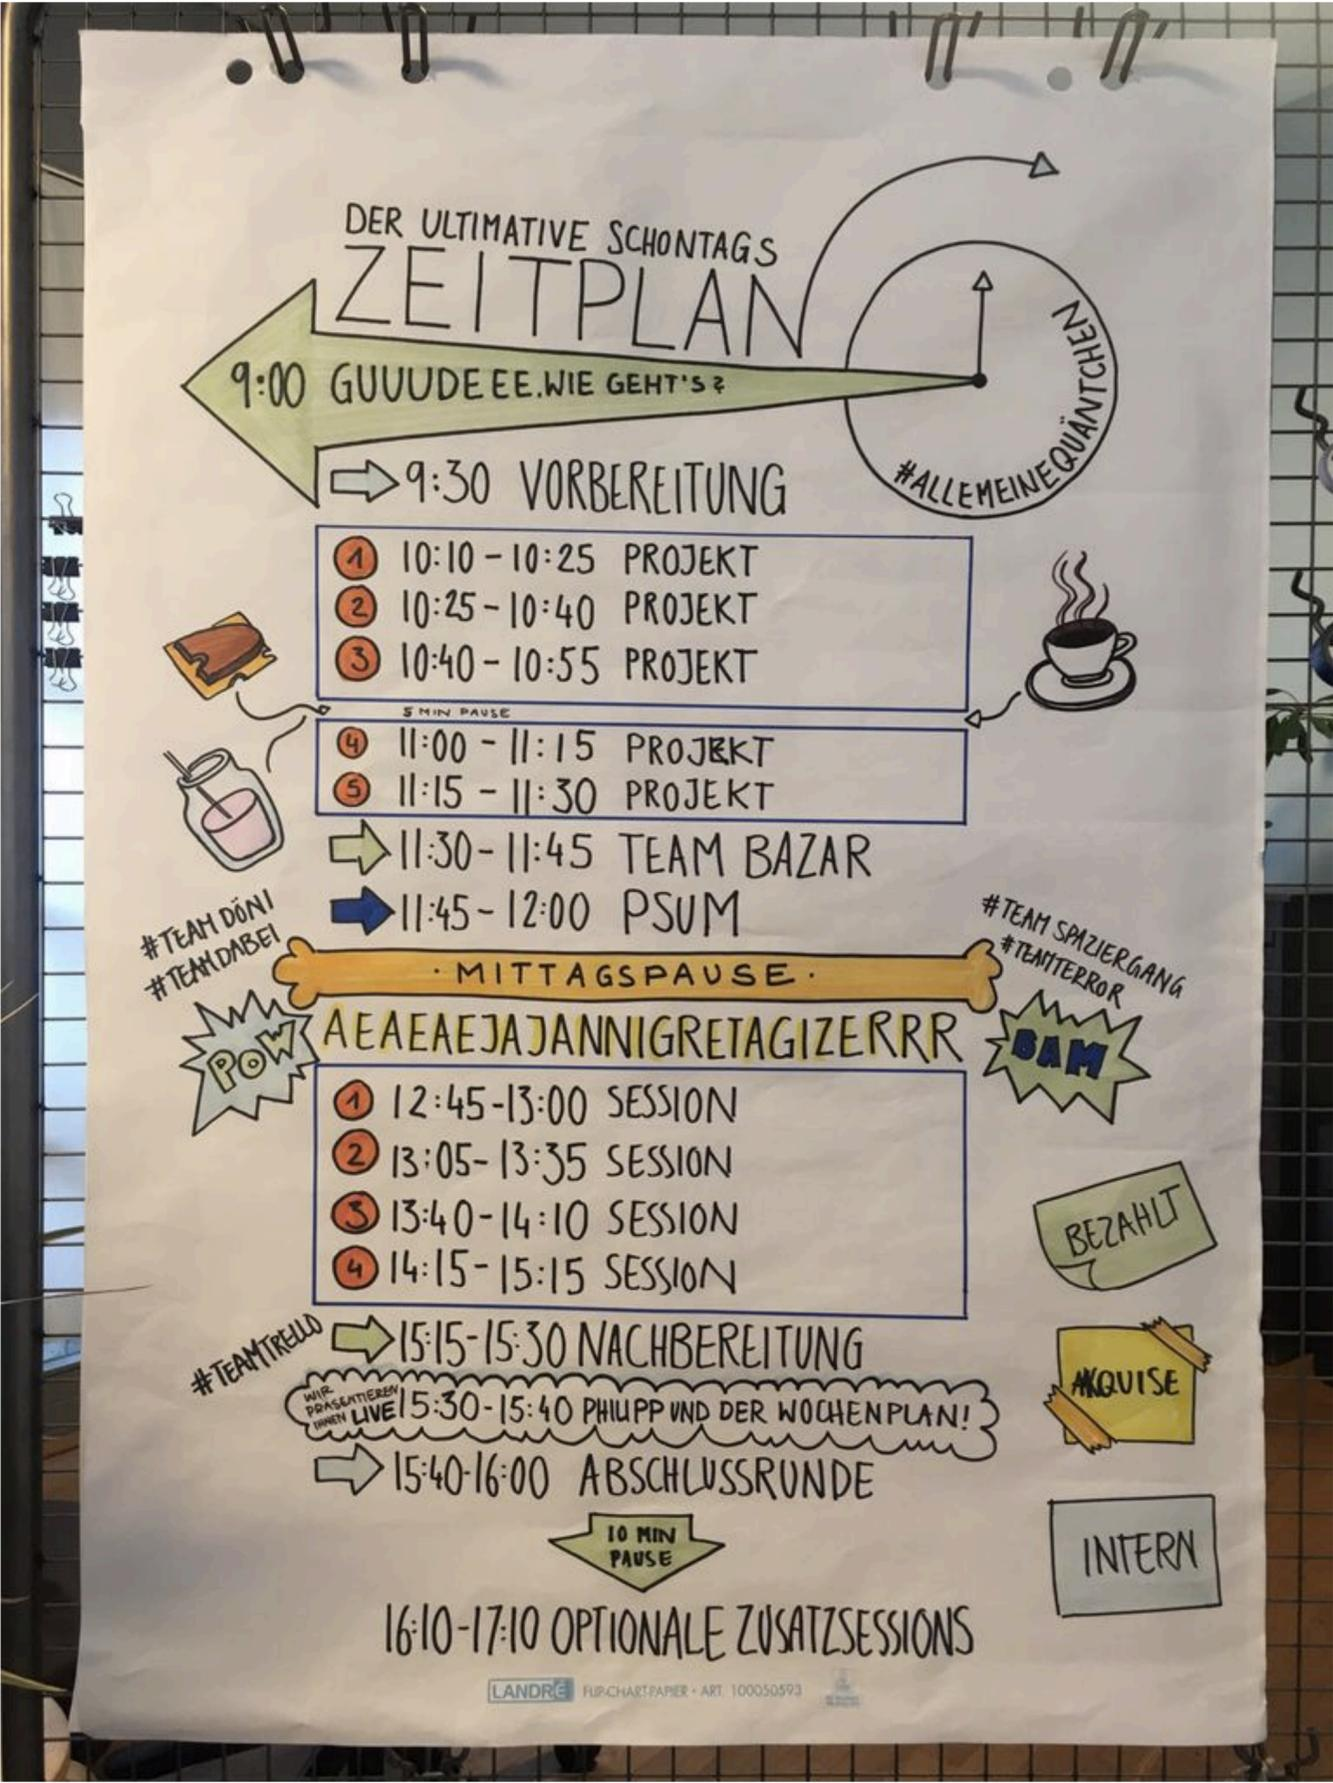 DER ULTIMATIVE SCHONTAGS
ZEITPLAN
9:00 GUUUDEEE. WIE GEHT'S?
#ALLEMEINEQUÄNTCHEN
9:30 VORBEREITUNG
1 10:10 - 10:25 PROJEKT
2 10:25 - 10:40 PROJEKT
3 10:40 - 10:55 PROJEKT
5 MIN PAUSE
4 11:00 - 11:15 PROJEKT
5 11:15 - 11:30 PROJEKT
11:30 - 11:45 TEAM BAZAR
11:45 - 12:00 PSUM
#TEAM DÖNI
#TEAMDABEI
· MITTAGSPAUSE ·
#TEAM SPAZIERGANG
#TEAMTERROR
POW
AEAEAEJAJANNIGRETAGIZERRR
BAM
1 12:45-13:00 SESSION
2 13:05-13:35 SESSION
3 13:40-14:10 SESSION
4 14:15-15:15 SESSION
BEZAHLT
#TEAMTRELLO
15:15-15:30 NACHBEREITUNG
AKQUISE
WIR
PRÄSENTIEREN
IHNEN LIVE 15:30-15:40 PHILIPP UND DER WOCHENPLAN!
15:40-16:00 ABSCHLUSSRUNDE
10 MIN
PAUSE
INTERN
16:10-17:10 OPTIONALE ZUSATZSESSIONS
LANDRÉ FLIP-CHART-PAPIER • ART. 100050593